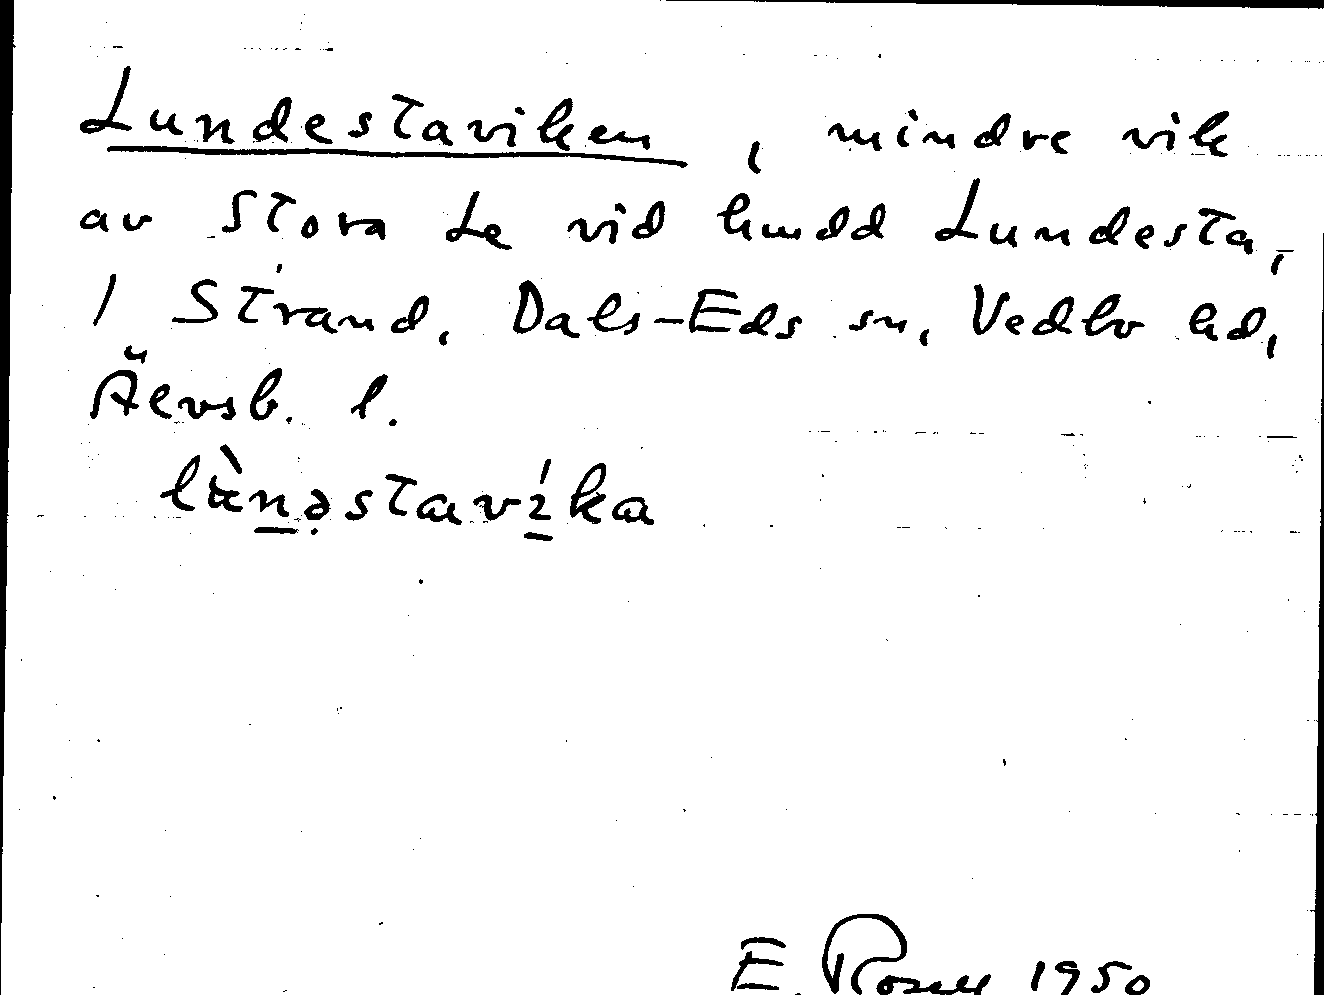 Lundestaviken, mindre vik
av Stora Le vid hmdd Lundesta,
/ Strand, Dals-Eds sn, Vedbo hd,
Älvsb. l.
lùnəstavíka
E. Rosell 1950